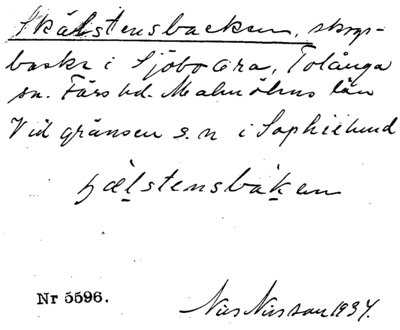 Skälstensbacken, skogs-
backe i Sjöbo Ora, Tolånga
sn. Färs hd. Malmöhus län
Vid gränsen s.n i Sophielund
hælstensbaken
Nr 5596.
Nils Nilsson 1934.